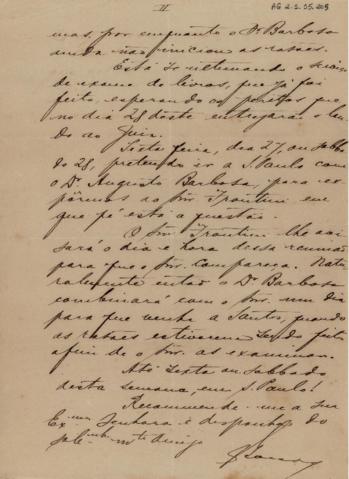 II
AG 2.2.05.205
mas, por emquanto o Dr Barbosa
ainda não iniciou as rasões.
Está se ultimando o
de exame de livros, que já foi
feito, esperando os peritos que
no dia 28 deste entregarão o lau-
do ao Juiz.
Sexta feira, dia 27, ou Sabba-
do 28, pretendo ir a S. Paulo com
o Dr. Augusto Barbosa, para ex-
pôrmos ao Snr. Trontini em
que pé está a questão.
O Snr. Trontini lhe avi
sará o dia e hora dessa reunião
para que o Snr. compareça. Natu
ralmente então o Dr Barbosa
combinará com o Snr. um dia
para que venha a Santos, quando
as rasões estiverem sendo feitas
afim de o Snr. as examinar.
Até Sexta ou Sabbado
desta semana, em S. Paulo!
Recommende-me a sua
Ex.ma Senhora e disponha do
mto Amigo